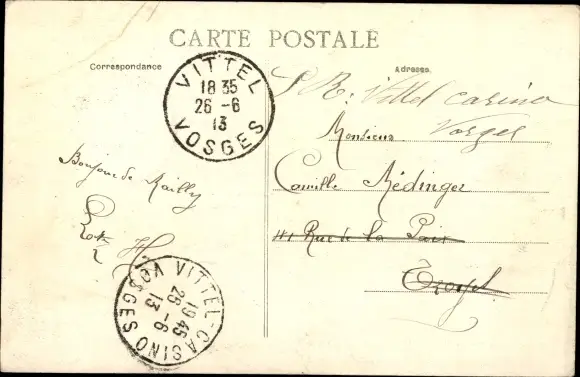 CARTE POSTALE
Correspondance
Adresse
VITTEL
18 35
26 - 6
13
VOSGES
P. R. Vittel Casino
Vosges
Monsieur
Camille Médinger
41 Rue de la Paix
Bonjour de Mailly
VITTEL-CASINO
19 45
26 - 6
13
VOSGES